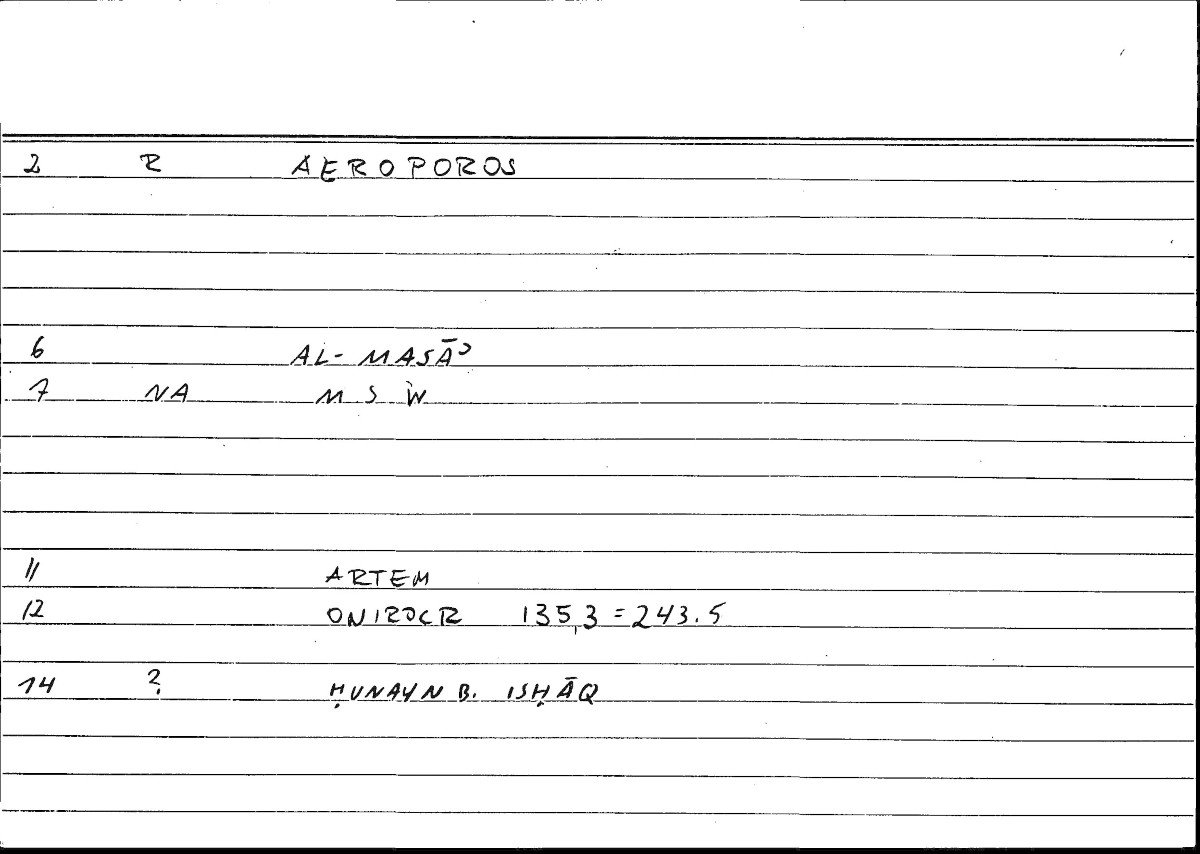 2 R AEROPOROS
6 AL-MASĀʾ
7 NA MSW
11 ARTEM
12 ONIROCR 135,3 = 243.5
14 ? ḤUNAYN B. ISḤĀQ